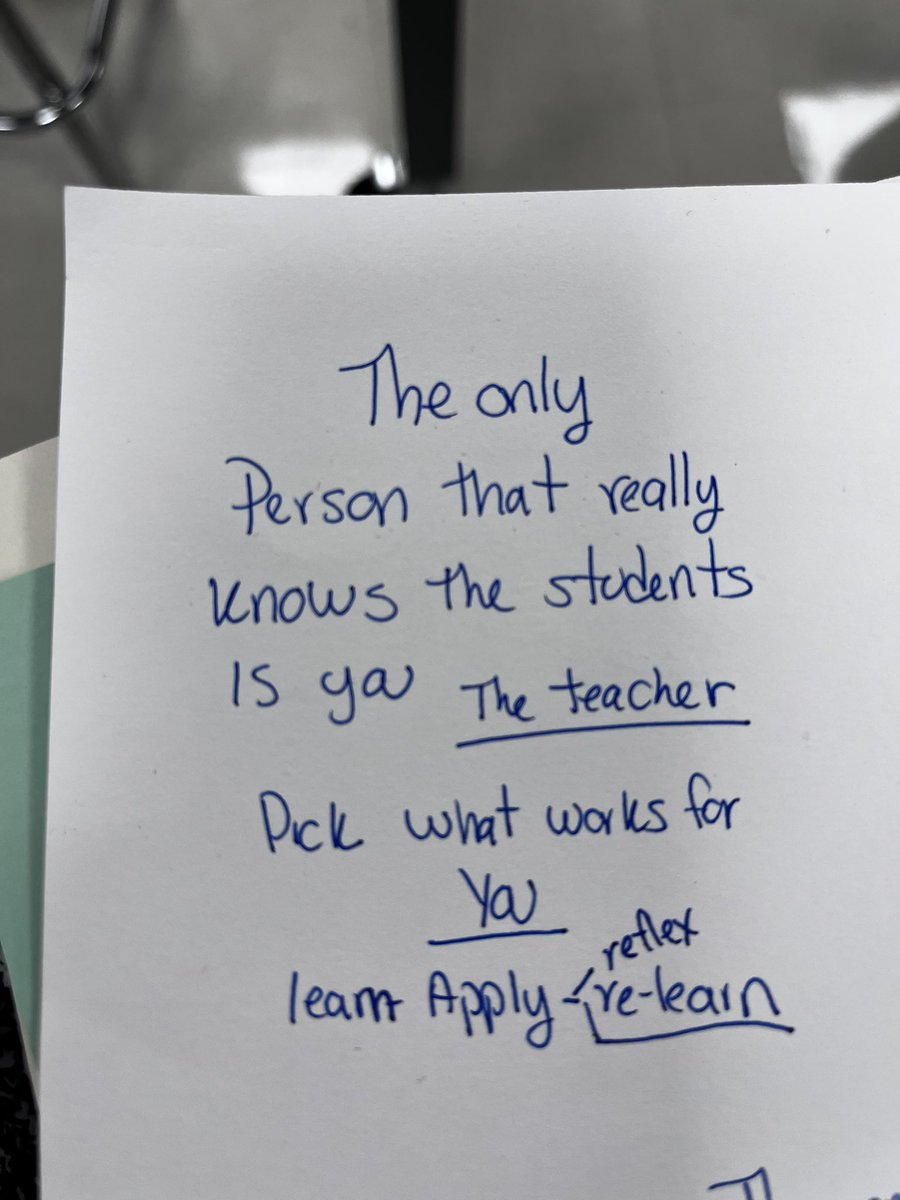 The only
Person that really
knows the students
Is you The teacher
Pick what works for
You
reflex
learn Apply - re-learn